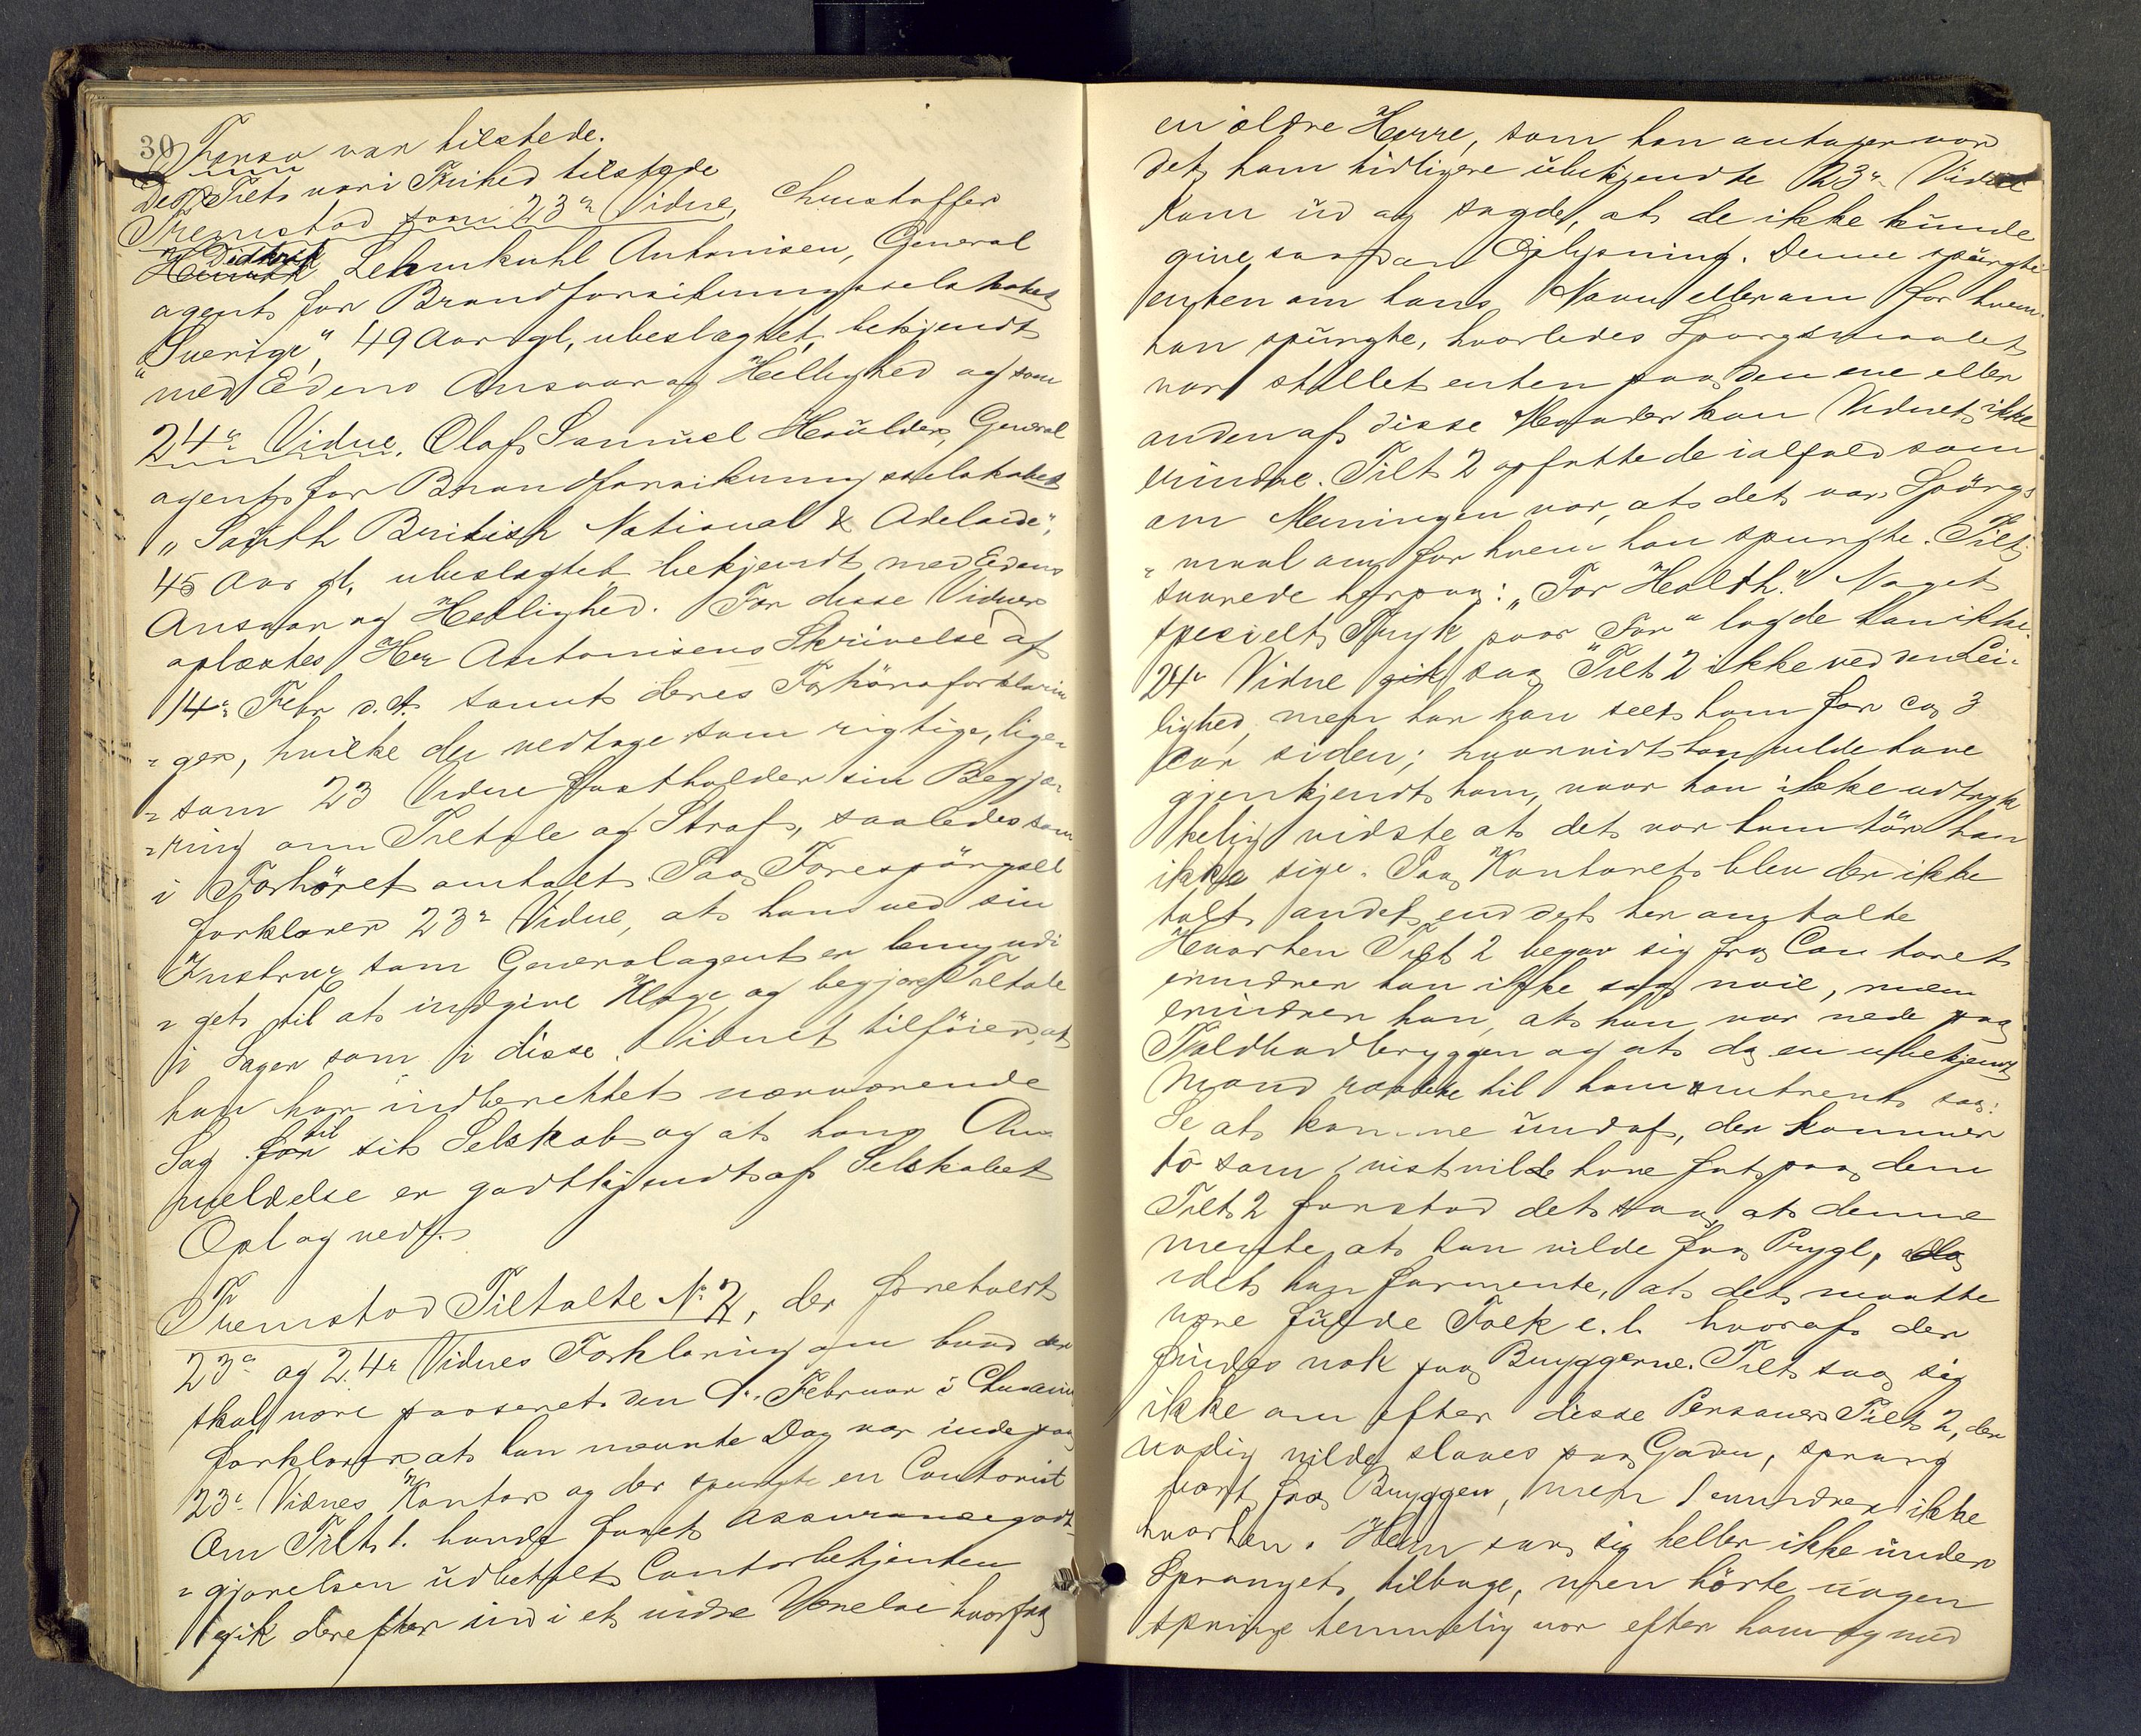 30
Thorsø var tilstede.
De 2 Tilt. var i Frihed tilstede
Fremstod som 23de Vidne, Christoffer
Didrik
Lehmkuhl Antonisen, General
agent for Brandforsikringsselskabet
"Sverige", 49 Aar gl, ubeslægtet, bekjendt
med Edens Ansvar og Hellighed og som
24de Vidne, Olaf Samuel Houlder, General
agent for Brandforsikringsselskabet
"South British National & Adelaide",
45 Aar gl, ubeslægtet bekjendt med Edens
Ansvar og Hellighed. For disse Vidner
oplæstes Hr Antonisens Skrivelse af
14de Febr d.A. samt deres Forhørsforklarin
ger, hvilke de vedtage som rigtige, lige
som 23 Vidne fastholder sin Begjæ
ring om Tiltale og Straf, saaledes som
i Forhøret omtalt. Paa Forespørgsel
forklarer 23de Vidne, at han ved sin
Instrux som Generalagent er bemyndi
get til at indgive Klage og begjære Tiltale
i Sager som i disse. Vidnet tilføier, at
han har indberettet nærværende
Sag for til sit Selskab og at hans An
meldelse er godtkjendt af Selskabet
Opl og vedt.
Fremstod Tiltalte No 2, der foreholdt
23de og 24de Vidnes Forklaring om hvad der
skal være passeret den 9. Februar i Chra
forklarer at han nævnte Dag var inde paa
23de Vidnes Kontor og der spurgte en Contorist
Om Tilt 1. havde faaet Assurancegodt
gjørelsen udbetalt Contorbetjenten
gik derefter ind i et indre Værelse hvorfra
en ældre Herre, som han antager var
det ham tidligere ubekjendte 23de Vidne
kom ud og sagde, at de ikke kunde
give saadan Oplysning. Denne spurgte
enten om hans Navn eller om for hvem
han spurgte, hvorledes Spørgsmaalet
var stillet enten paa den ene eller
anden af disse Maader kan Vidnet ikke
erindre. Tilt 2 opfattede ialfald som
om Meningen var, at det var Spørgs
maal om for hvem han spurgte. Tilt
svarede herpaa: "For Healdh." Noget
specielt Tryk paa "For" lagde han ikke.
24de Vidne gik saa Tilt 2 ikke ved den Lei
lighed, men han har seet ham for ca 3
Aar siden; hvorvidt han vilde have
gjenkjendt ham, naar han ikke udtryk
kelig vidste at det var ham tør han
ikke sige. Paa Kontoret blev der ikke
talt andet end det her omtalte
Hvorhen Tilt 2 begav sig fra Contoret
erindrer han ikke saa nøie, men
erindrer han, at han var nede paa
Toldbodbryggen og at da en ubekjendt
Mand raabte til ham omtrent saa:
Se at komme undaf, der kommer
to som vist vilde have fat paa dem
Tilt 2 forstod det saa, at denne
mente, at han vilde faa Prygl,
idet han formente, at det maatte
være fulde Folk e.l. hvoraf der
findes nok paa Bryggerne. Tilt saa sig
ikke om efter disse Personer Tilt 2, der
nødig vilde slaaes paa Gaden, sprang
bort fra Bryggen, men erindrer ikke
hvorhen. Han saa sig heller ikke under
Sprangets tilbage, men hørte nogen
springe temmelig nær efter ham og med